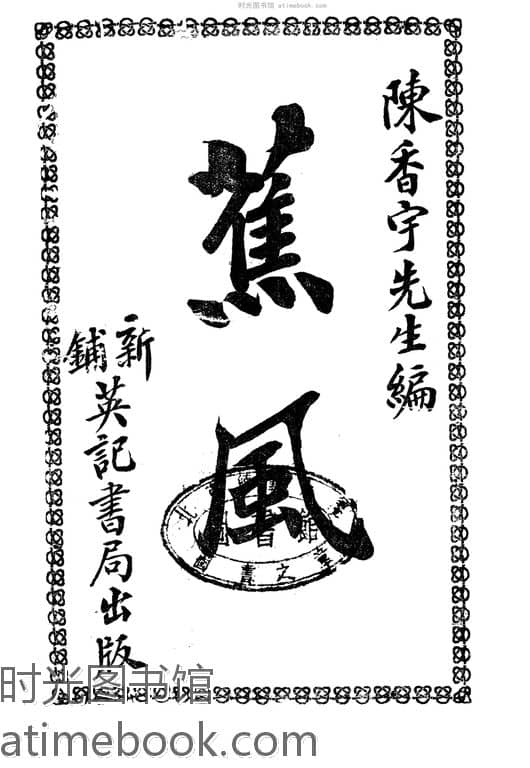 时光图书馆 atimebook.com
陳香宇先生編
蕉風
新舖
英記書局出版
北
館
書
章之書圖
时光图书馆
atimebook.com